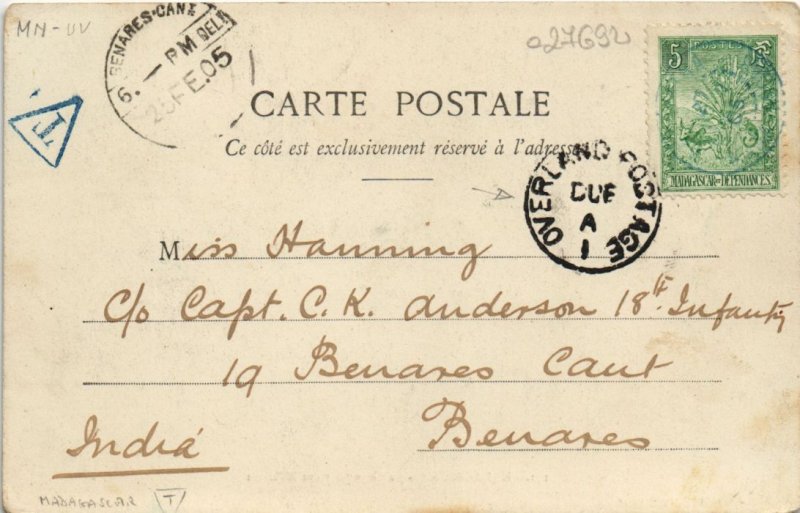 MN-UV
BENARES·CANT
6. — PM DELY
2 FE.05
T
027692
5
POSTES
MADAGASCAR ET DÉPENDANCES
CARTE POSTALE
Ce côté est exclusivement réservé à l'adresse
OVERLAND POSTAGE
DUE
A
1
Miss Hanning
c/o Capt. C. K. Anderson 18th Infantry
19 Benares Cant
Benares
Indiá
MADAGASCAR T